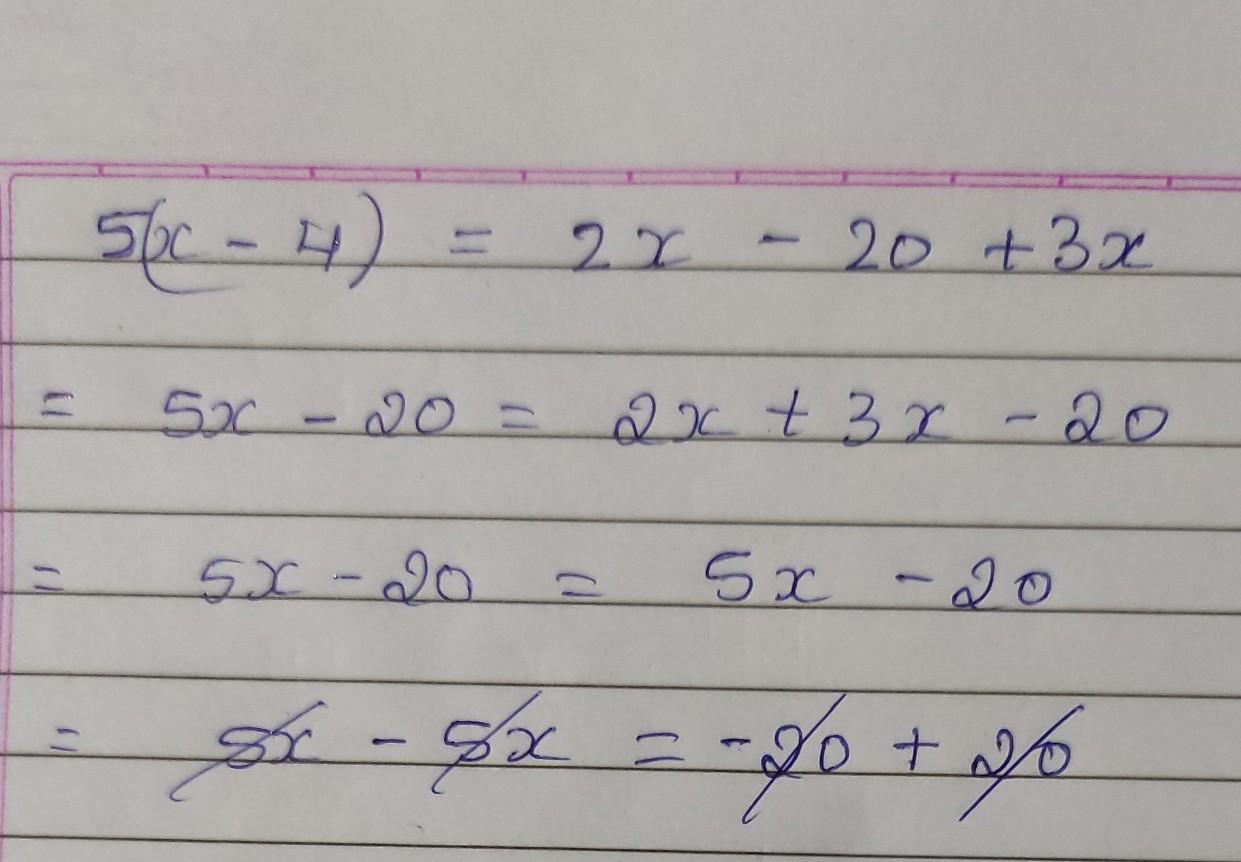 5(x - 4) = 2x - 20 + 3x
= 5x - 20 = 2x + 3x - 20
= 5x - 20 = 5x - 20
= 5x - 5x = -20 + 20